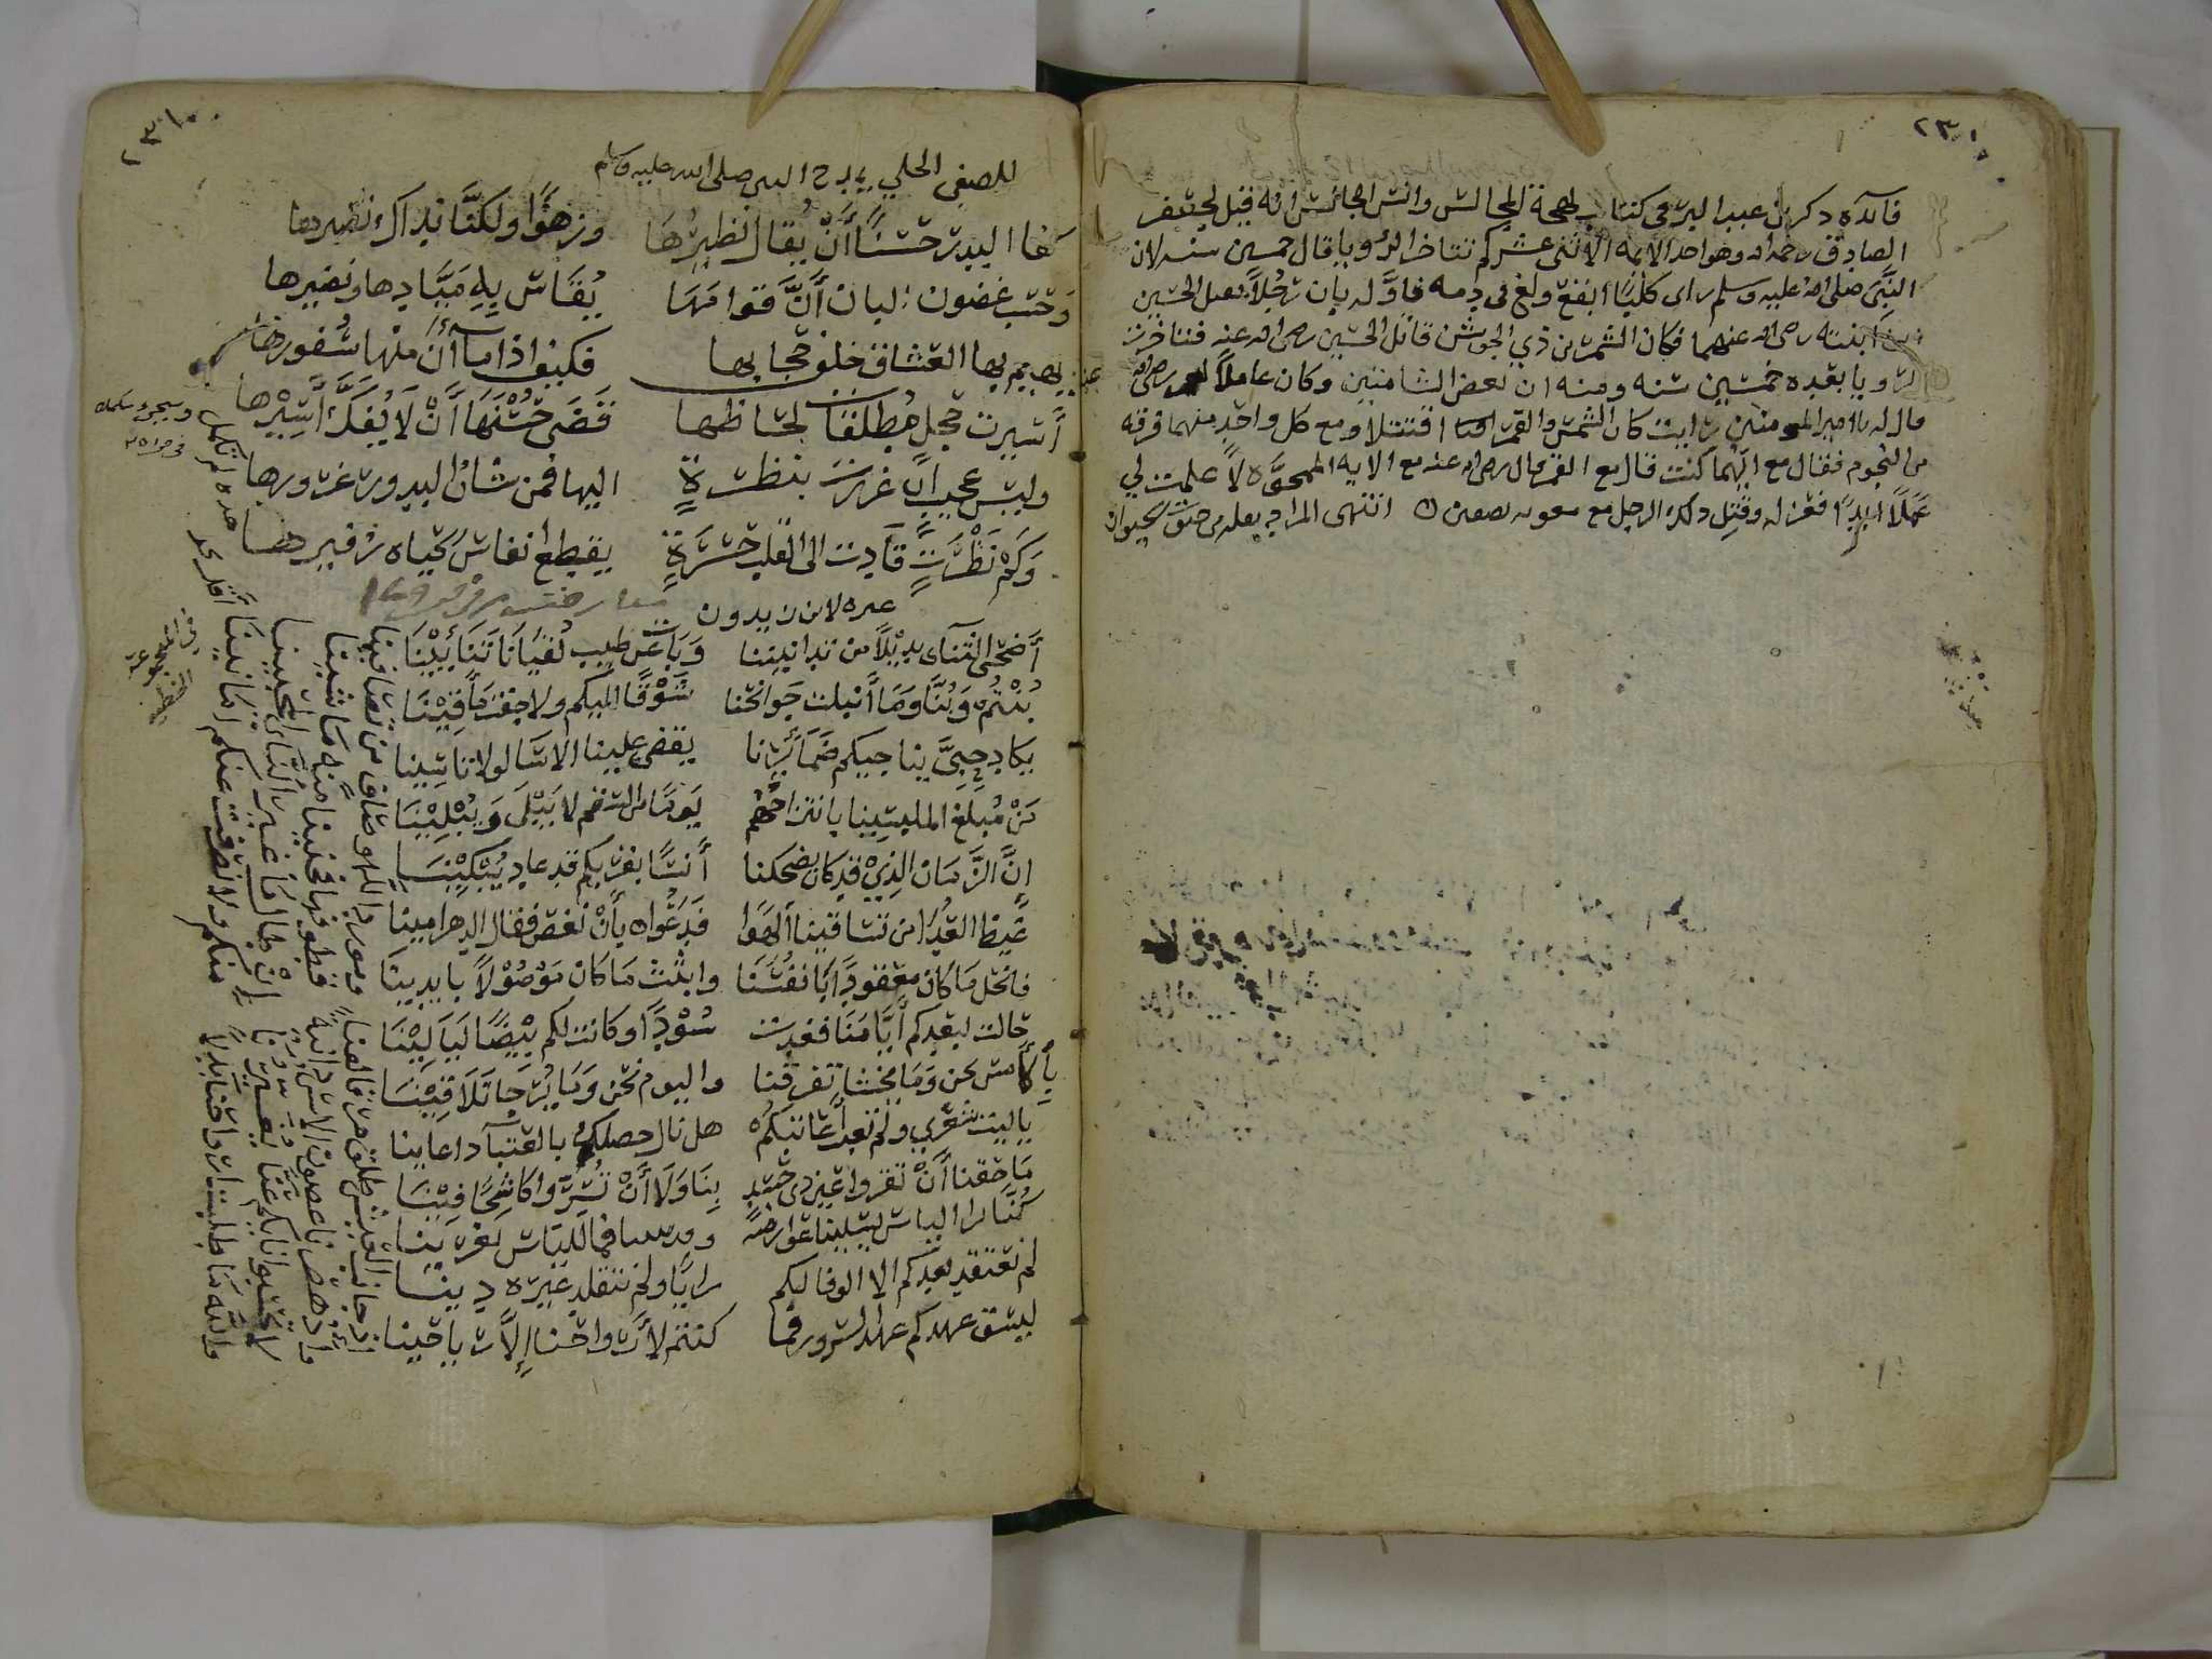 ٢٣١
فائده ذكر بن عبد البر في كتاب بهجة المجالس وانس المجالس انه قيل لجعفر
الصادق رحمه الله وهو احد الائمه الاثنى عشر كم تتاخر الرؤيا قال خمسين سنه لان
النبي صلى الله عليه وسلم راى كلبًا ابقع ولغ في دمه فاوّله بان رجلاً يقتل الحسين
بن ابنته رضي الله عنهما فكان الشمر بن ذي الجوشن قاتل الحسين رضي الله عنه فتاخرت
الرؤيا بعده خمسين سنه ومنه ان بعض الشاميين وكان عاملاً لعمر رضي الله عنه
قال له يا امير المومنين رايت كان الشمس والقمر اقتتلا ومع كل واحد منهما فرقه
من النجوم فقال مع ايهما كنت قال مع القمر قال رضي الله عنه مع الايه الممحوّه لا عملت لي
عملًا ابدًا فعزله وقتل ذلك الرجل مع معويه بصفين انتهى المراد نقله من حيوة الحيوان
٢٣١
للصفي الحلي يمدح النبي صلى الله عليه وسلم
كفا البدر حسنًا أن يُقال نظيرُها وزهوًا ولكنّا بذاك نضيرها
وحسب غصون البان أنّ قوامَهَا يُقاس بِهِ مَيّادها ونضيرها
يهيم بها العشاق خلف حجابها فكيف اذا ما آن منها سُفورها
أسيرت حجل مطلقات لحاظها قضى حسنها أن لا يُفكّ أسيرها
وليس عجيبًا ان غررت بنظرة اليها فمن شان البدور غرورها
وكم نظرت قادت الى القلب حسرة يقطع انفاس الحياه زفيرها
غيره لابن زيدون
أضحى التنآى بديلًا من تدانينا وناب عن طيب لُقيانا تنائينا
بنتم وبنّا وما أبتلت جوانحنا شوقًا اليكم ولا جفت مأقينا
يكاد حين يناجيكم ضمائرنا يقضي علينا الاسا لولا تاسينا
من مُبلغ الملبسينا بانتزاحهم ثوبًا من السقم لا يبلى ويُبلينا
إنّ الزّمان الذي قد كان يضحكنا أنسًا بقربكم قد عاد يُبكينا
غيظ العُدا من تساقينا الهوا فدعوا بأن نغص فقال الدهر امينا
فانحل ما كان معقودًا بأنفسنا وانبث ما كان موصولًا بايدينا
حالت لبعدكم أيّامنا فغدت سُودًا وكانت لكم بيضًا ليالينا
بالأمس نحن وما يخشا تفرقنا واليوم نحن وما يُرجا تلاقينا
ياليت شعري ولم نعتب أعاديكم هل نال حصلكم بالعتبا اداعاينا
ما حقنا أن تقروا عين ذي حسد بنا ولا أن تسرّوا كاشحًا فينا
كنّا نرا الياس تسلينا عوارضه وقد يسنا فما لليأس يغرينا
لم نعتقد بعدكم الا الوفا لكم رايًا ولم نتقلد غيره دينا
ليسق عهدكم عهد السرور فما كنتم لأرواحنا إلا رياحينا
اذ جانب العيش طلق من تألفنا ومورد اللهو صاف من تصافينا
واذ هصرنا غصون الانس دانية قطوفها فجنينا منه ما شينا
لا تحسبوا نايكم عنّا يغيرنا إن طال ما غير الناى المحبينا
والله ما طلبت ارواحنا بدلًا منكم ولا انصرفت عنكم امانينا